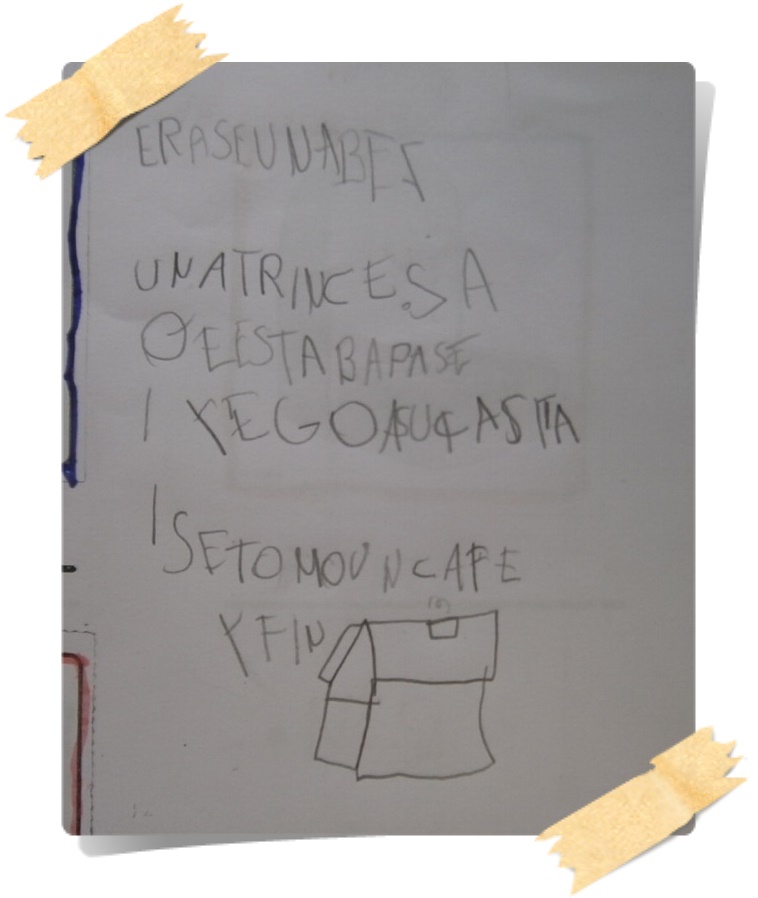 ERASEUNABEZ
UNATRINCESA
QEESTABAPASE
I YEGOASUCASITA
I SETOMOUNCAFE
Y FIN